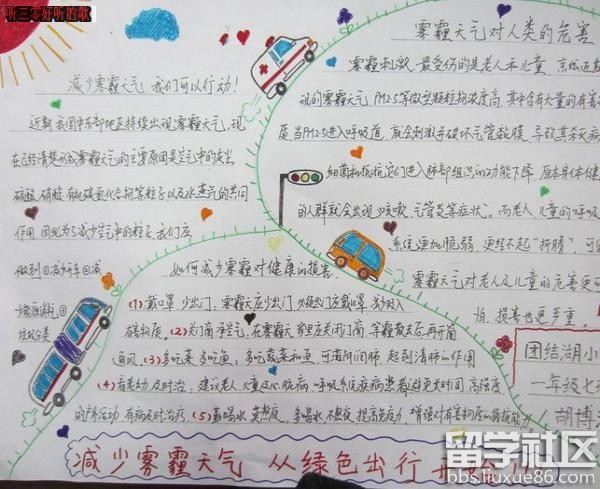 减少雾霾天气,我们可以行动!
近期我国中东部地区持续出现雾霾天气,现
在已经清楚形成雾霾天气的主要原因是空气中的灰尘、
硫酸、硝酸、有机碳氢化合物等粒子以及水蒸气的共同
作用。因此为了减少空气中的粒子,我们应
做到①减少开车②减
垃圾分类
雾霾天气对人类的危害
雾霾刺激,最受伤的是老人和儿童。京城近期
现的雾霾天气,PM2.5等微型颗粒物浓度高,其中含有大量的有害
质,当PM2.5进入呼吸道,就会刺激并破坏气管粘膜,导致其
细菌和抵抗它们进入肺部组织的功能下降,原本身体健
的人群就会出现咳嗽、气管炎等症状。而老人、儿童的呼吸
系统更加脆弱,更经不起“折腾”,可
雾霾天气对老人及儿童的危害更
怕,损害也更严重。
如何减少雾霾对健康的损害
(1)戴口罩,少出门,雾霾天应少出门,必须出门应戴口罩,减少吸入
有害物质。(2)关门窗,净空气,在雾霾天,家里应关闭门窗,等霾散去后再开窗
通风。(3)多吃菜,多吃鱼,多吃蔬菜和豆,可滋阴润肺,起到清肺的作用
(4)有老幼,及时治,建议老人、儿童及心脏病、呼吸系统疾病患者避免长时间、高强度
的户外活动,有病及时治疗。(5)勤喝水,莫熬夜,多喝水,不熬夜,提高免疫力,增强对有害物质的抵抗能力。
团结湖小
一年级七
胡博
减少雾霾天气 从绿色出行开始
留学社区
bbs.liuxue86.com